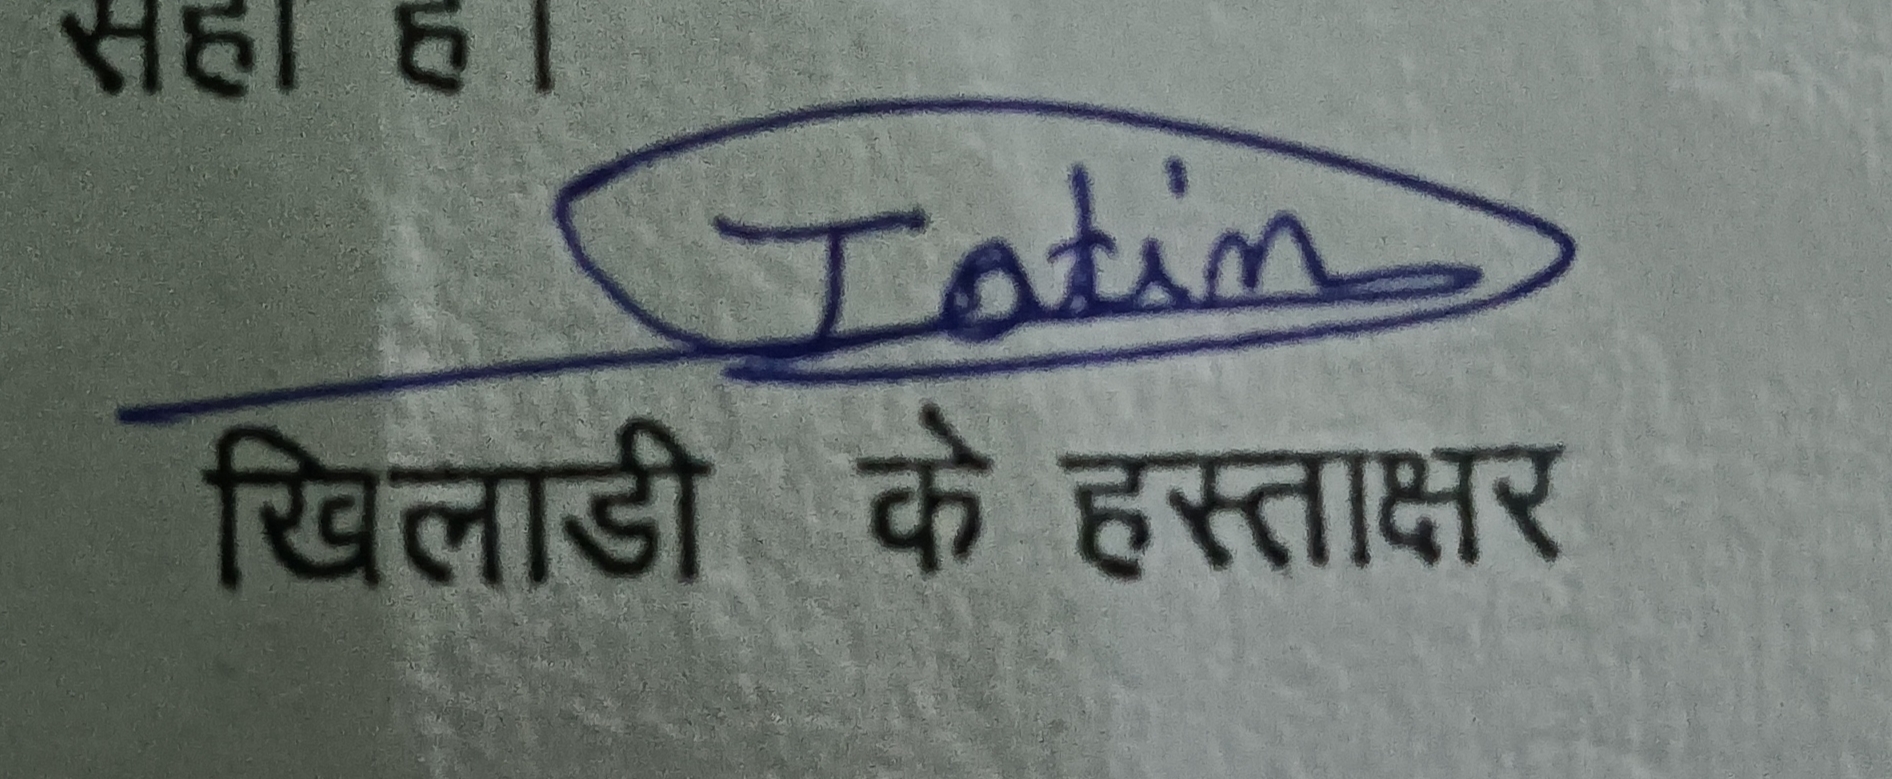 सही है।
Jatin
खिलाडी के हस्ताक्षर